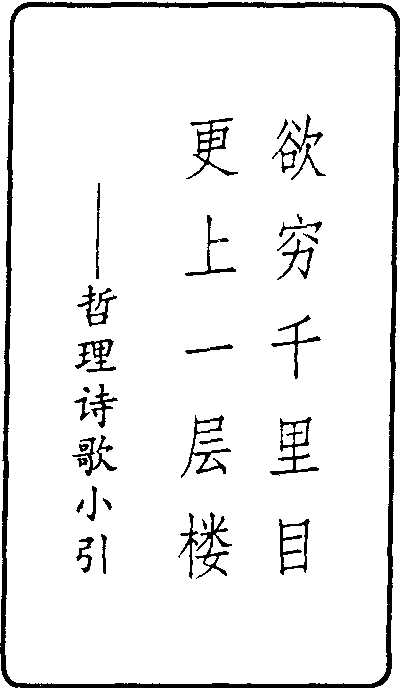 欲穷千里目
更上一层楼
——哲理诗歌小引